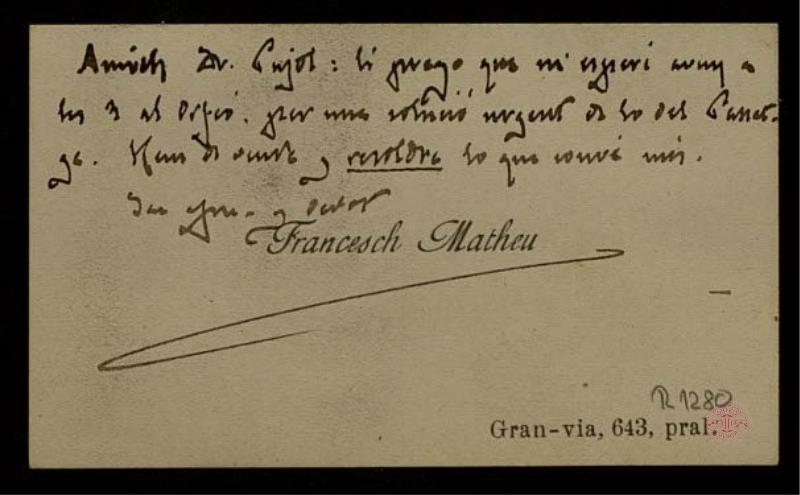 Amich Dr. Pujol: li prego que m'esperi avuy a
les 3 al Orfeó, per una solució urgent de lo del Passat-
ge. Hem de veure y resoldre lo que convé més.
Son afm. y devot
Francesch Matheu
R 1280
Gran-via, 643, pral.